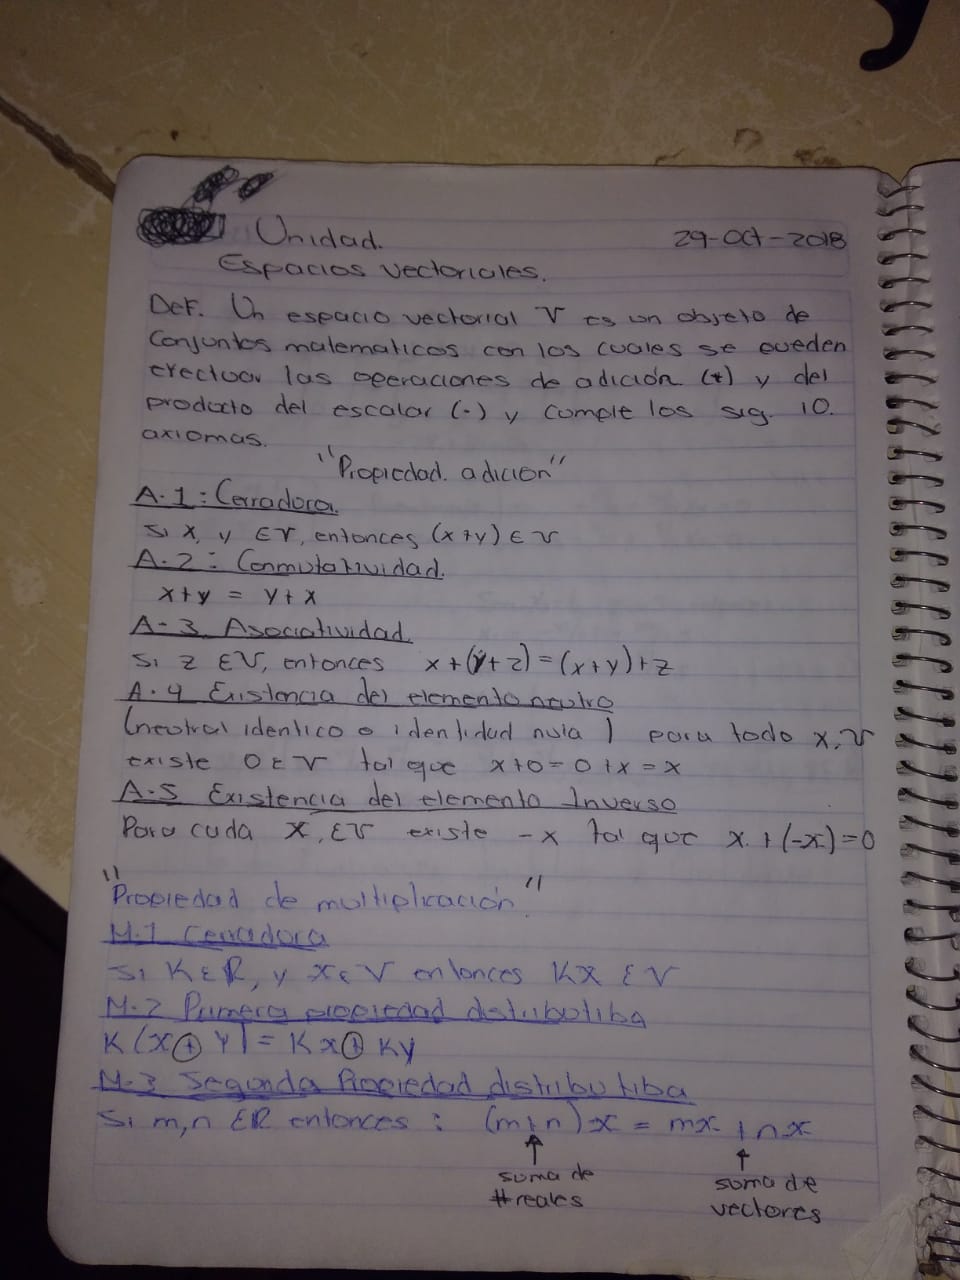 Unidad. 29-Oct-2018
Espacios vectoriales.
Def. Un espacio vectorial V es un objeto de
Conjuntos matematicos con los cuales se pueden
efectuar las operaciones de adición (+) y del
producto del escalar (·) y cumple los sig. 10.
axiomas.
"Propiedad. adición"
A.1: Cerradora.
Si x, y ∈ V, entonces (x+y) ∈ V
A.2: Conmutatividad.
x+y = y+x
A-3 Asociatividad.
Si z ∈ V, entonces x+(y+z)=(x+y)+z
A.4 Existencia del elemento neutro
(neutral identico o identidad nula) para todo x, V
existe 0 ∈ V tal que x+0=0+x=x
A.5 Existencia del elemento Inverso
Para cada x, ∈ V existe -x tal que x.+(-x)=0
"Propiedad de multiplicación."
M.1 Cerradora
Si K ∈ R, y x ∈ V entonces Kx ∈ V
M.2 Primera propiedad distributiba
K(x⊕y)=Kx⊕Ky
M.3 Segunda Propiedad distributiba
Si m,n ∈ R entonces: (m+n)x = mx+nx
↑ ↑
suma de suma de
#reales vectores